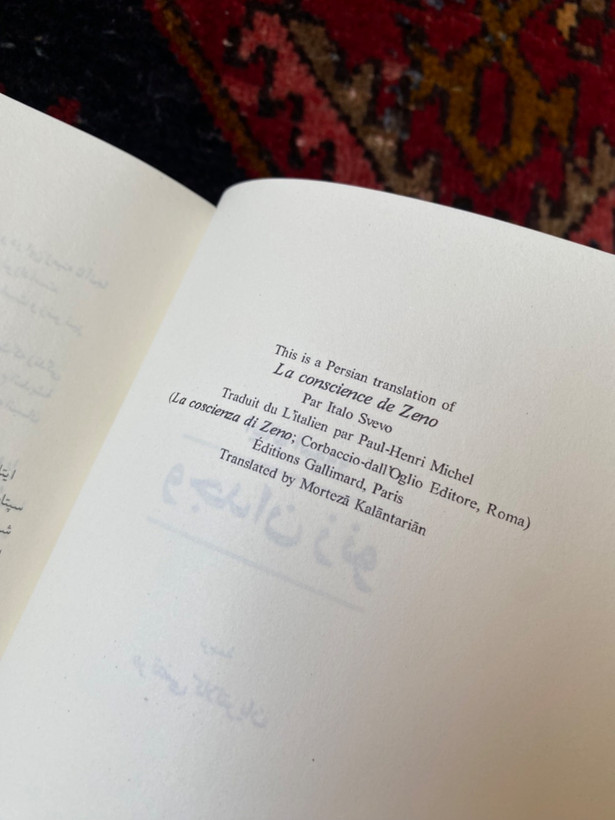 This is a Persian translation of
La conscience de Zeno
Par Italo Svevo
Traduit du L'italien par Paul-Henri Michel
(La coscienza di Zeno; Corbaccio-dall'Oglio Editore, Roma)
Éditions Gallimard, Paris
Translated by Mortezā Kalāntariān
وجدان زنو